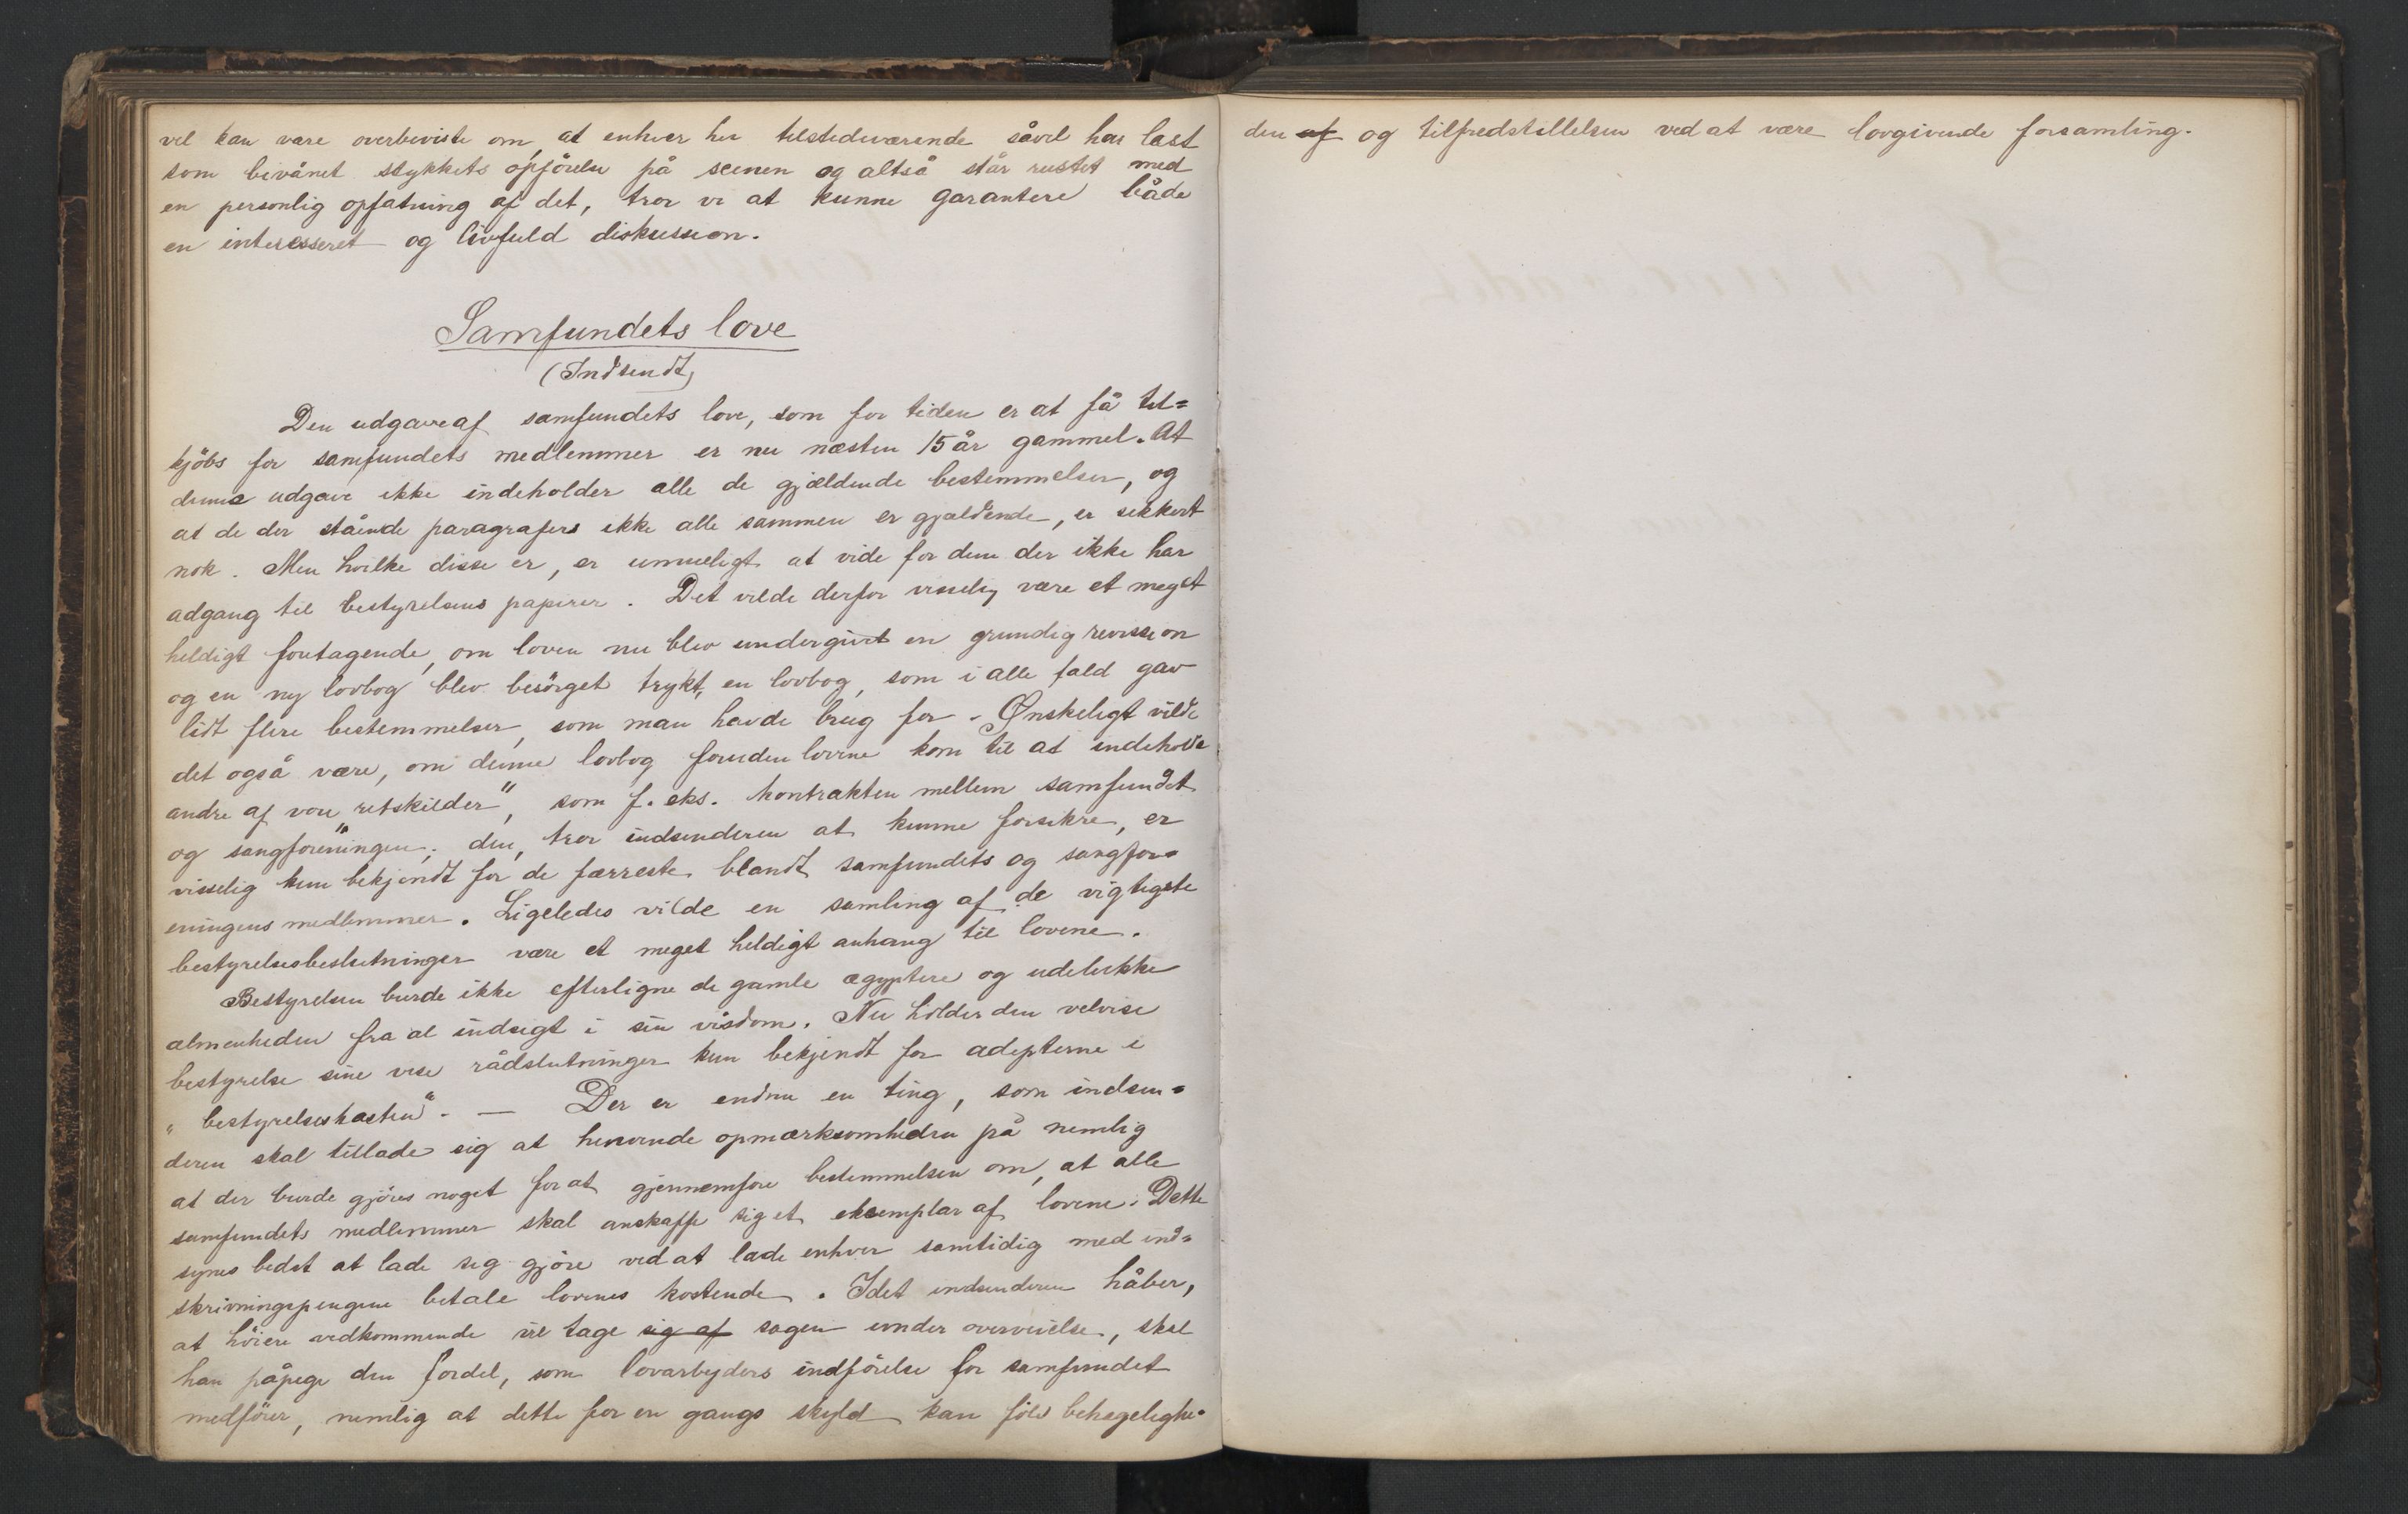 vel kan være overbeviste om, at enhver her tilstedeværende såvel har læst
som bivånet stykkets opförelse på scenen og altså står rustet med
en personlig opfatning af det, tror vi at kunne garantere både
en interesseret og livfuld diskussion.
Samfundets love
(Indsendt)
Den udgave af samfundets love, som for tiden er at få til=
kjöbs for samfundets medlemmer er nu næsten 15 år gammel. At
denne udgave ikke indeholder alle de gjældende bestemmelser, og
at de der stående paragrafers ikke alle sammen er gjældende, er sikkert
nok. Men hvilke disse er, er umueligt at vide for dem der ikke har
adgang til bestyrelsens papirer. Det vilde derfor visselig være et meget
heldigt foretagende, om loven nu blev undergivet en grundig revission
og en ny lovbog blev besörget trykt, en lovbog, som i alle fald gav
lidt flere bestemmelser, som man havde brug for. Ønskeligt vilde
det også være, om denne lovbog foruden lovene kom til at indeholde
andre af vore „retskilder", som f. eks. kontrakten mellem samfundet
og sangforeningen; den, tror indsenderen at kunne forsikre, er
visselig kun bekjendt for de færreste blandt samfundets og sangfor=
eningens medlemmer. Ligeledes vilde en samling af de vigtigste
bestyrelsesbeslutninger være et meget heldigt anhang til lovene.
Bestyrelsen burde ikke efterligne de gamle ægyptere og udelukke
almenheden fra al indsigt i sin visdom. Nu holder den velvise
bestyrelse sine vise rådslutninger kun bekjendt for adepterne i
„bestyrelseskasten". — Der er endnu en ting, som indsen=
deren skal tillade sig at henvende opmærksomheden på nemlig
at der burde gjöres noget for at gjennemföre bestemmelsen om, at alle
samfundets medlemmer skal anskaffe sig et eksemplar af lovene. Dette
synes bedst at lade sig gjöre ved at lade enhver samtidig med ind=
skrivningspengene betale lovenes kostende. Idet indsenderen håber,
at höiere vedkommende vil tage sig af sagen under overveielse, skal
han påpege den fordel, som lovarbejders indförelse for samfundet
medförer, nemlig at dette for en gangs skyld kan föle behagelighe=
den af og tilfredstillelsen ved at være lovgivende forsamling.